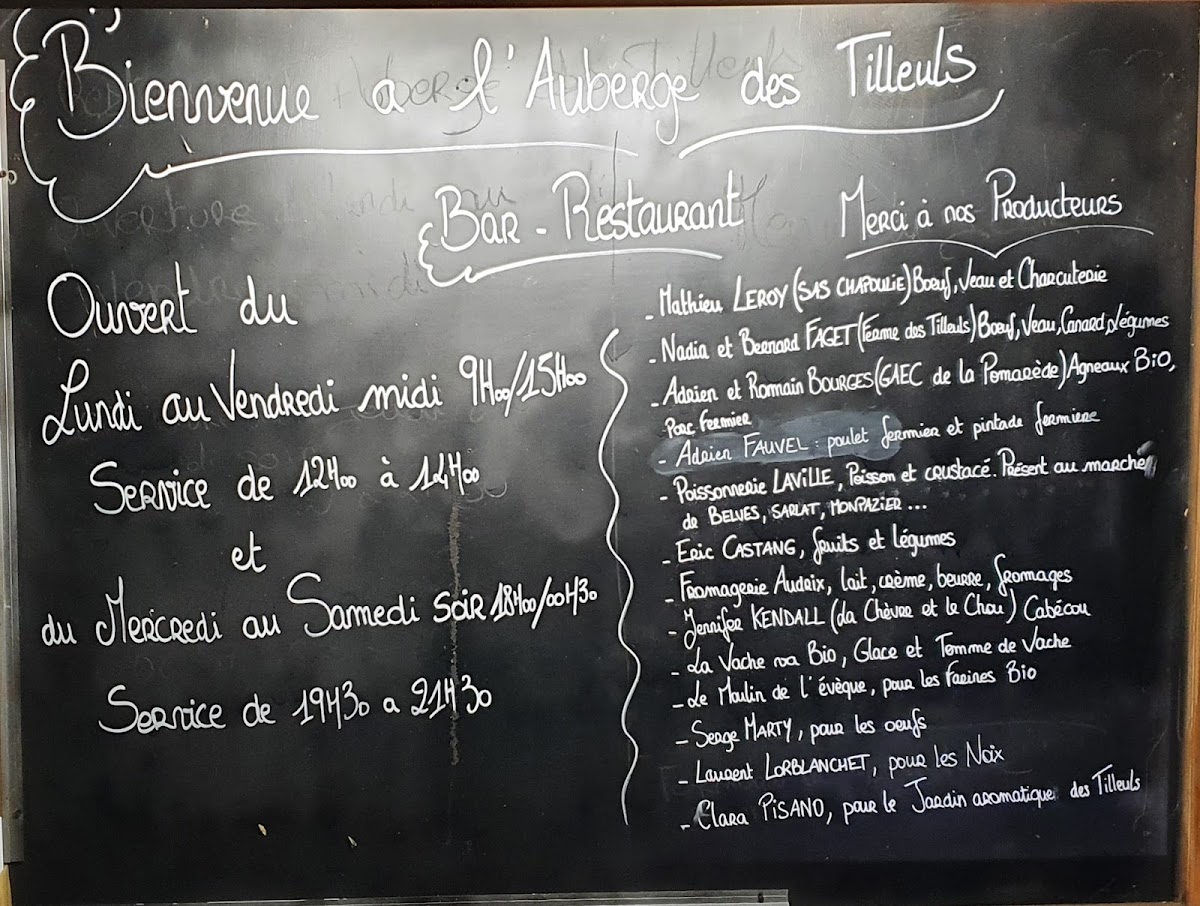 Bienvenue a l'Auberge des Tilleuls
Bar - Restaurant
Ouvert du
Lundi au Vendredi midi 9H00/15H00
Service de 12H00 à 14H00
et
du Mercredi au Samedi soir 18H00/00H30
Service de 19H30 a 21H30
Merci à nos Producteurs
- Mathieu LEROY (SAS CHAPOULIE) Boeuf, Veau et Charcuterie
- Nadia et Bernard FAGET (Ferme des Tilleuls) Boeuf, Veau, Canard, Légumes
- Adrien et Romain BOURGES (GAEC de la Pomarède) Agneaux BiO,
Porc Fermier
- Adrien FAUVEL : poulet fermier et pintade fermiere
- Poissonnerie LAVILLE, Poisson et crustacé. Présent au marché
de BELVES, SARLAT, MONPAZIER ...
- Eric CASTANG, fruits et légumes
- Fromagerie Audrix, lait, crème, beurre, fromages
- Jennifer KENDALL (La Chèvre et le Chou) Cabécou
- La Vache na Bio, Glace et Tomme de Vache
- Le Moulin de l'évèque, pour les Farines Bio
- Serge MARTY, pour les oeufs
- Laurent LORBLANCHET, pour les Noix
- Clara PISANO, pour le Jardin aromatique des Tilleuls